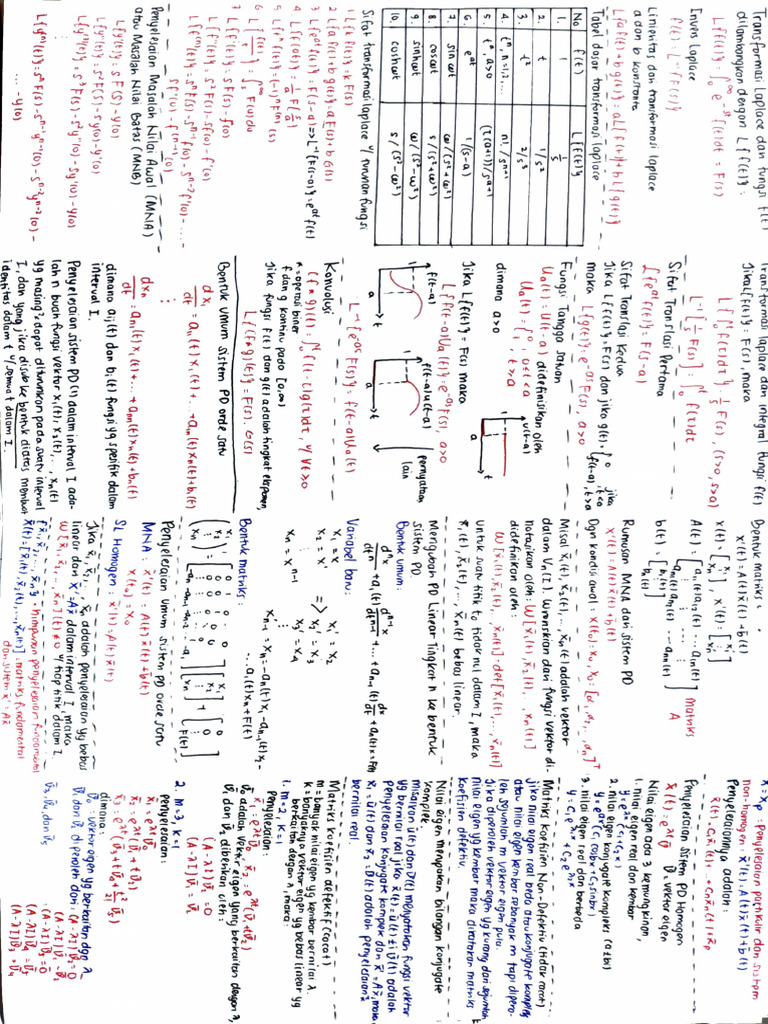 Transformasi laplace dari fungsi f(t)
dilambangkan dengan L{f(t)}:
L{f(t)} = ∫₀^∞ e^-st f(t) dt = F(s)
Invers Laplace
f(t) = L⁻¹{F(s)}
Linieritas dari transformasi laplace
a dan b konstanta
L{af(t)+bg(t)} = aL{f(t)}+bL{g(t)}
Tabel dasar transformasi laplace
No f(t) L{f(t)}
1. 1 1/s
2. t 1/s²
3. t² 2/s³
4. tⁿ, n=1,2,... n!/sⁿ⁺¹
5. tᵃ, a>0 (τ(a+1))/sᵃ⁺¹
6. eᵃᵗ 1/(s-a)
7. sin ωt ω/(s²+ω²)
8. cos ωt s/(s²+ω²)
9. sinh ωt ω/(s²-ω²)
10. cosh ωt s/(s²-ω²)
Sifat transformasi laplace u/ turunan fungsi
1. L{kf(t)} = kF(s)
2. L{af(t)+bg(t)} = aF(s)+bG(s)
3. L{eᵃᵗf(t)} = F(s-a) => L⁻¹{F(s-a)} = eᵃᵗf(t)
4. L{f(at)} = 1/a F(s/a)
5. L{tⁿf(t)} = (-1)ⁿF⁽ⁿ⁾(s)
6. L{f(t)/t} = ∫ₛ^∞ F(u)du
7. L{f'(t)} = sF(s)-f(0)
L{f''(t)} = s²F(s)-sf(0)-f'(0)
L{fⁿ(t)} = sⁿF(s)-sⁿ⁻¹f(0)-sⁿ⁻²f'(0)-...-
sfⁿ⁻²(0)-f⁽ⁿ⁻¹⁾(0)
Penyelesaian Masalah Nilai Awal (MNA)
atau Masalah Nilai Batas (MNB)
L{y'(t)} = sF(s)-y(0)
L{y''(t)} = s²F(s)-sy(0)-y'(0)
L{y'''(t)} = s³F(s)-s²y(0)-sy'(0)-y''(0)
L{yⁿ(t)} = sⁿF(s)-sⁿ⁻¹y(0)-sⁿ⁻²y'(0)-
...-yⁿ⁻¹(0)
Transformasi laplace dari integral fungsi f(t)
Jika L{f(t)} = F(s), maka
L{∫₀ᵗ f(t)dt} = 1/s F(s), (s>0, s>a)
L⁻¹{1/s F(s)} = ∫₀ᵗ f(t)dt
Sifat Translasi Pertama
L{eᵃᵗf(t)} = F(s-a)
Sifat Translasi Kedua
Jika L{f(t)} = F(s) dan jika g(t) = {0 jika t<a
f(t-a), t>a
maka L{g(t)} = e^-as F(s), a>0
Fungsi Tangga Satuan
Uₐ(t) = U(t-a) didefinisikan oleh
Uₐ(t) = {0, 0<t<a
1, t>a
dimana a>0
Jika L{f(t)} = F(s) maka
L{f(t-a)Uₐ(t)} = e^-as F(s), a>0
f(t-a) f(t-a)u(t-a) pernyataan lain
L⁻¹{e^-as F(s)} = f(t-a)Uₐ(t)
Konvolusi
(f*g)(t) = ∫₀ᵗ f(t-τ)g(τ)dτ, u/ ∀t>0
* = operasi biner
f dan g kontinu pada [0,∞)
Jika fungsi f(t) dan g(t) adalah tingkat eksponen
L{(f*g)(t)} = F(s).G(s)
Bentuk umum sistem PD orde satu
dx₁/dt = a₁₁(t)x₁(t)+...+a₁ₙ(t)xₙ(t)+b₁(t)
⋮
dxₙ/dt = aₙ₁(t)x₁(t)+...+aₙₙ(t)xₙ(t)+bₙ(t)
dimana aᵢⱼ(t) dan bᵢ(t) fungsi yg spesifik dalam
interval I.
Penyelesaian sistem PD (1) dalam interval I ada-
lah n buah fungsi vektor x₁(t), x₂(t), ..., xₙ(t)
yg masing² dapat diturunkan pada suatu interval
I, dan yang jika disubs ke bentuk diatas membuat
identitas dalam t u/ semua t dalam I.
Bentuk matriks:
x̄'(t) = A(t)x̄(t)+b̄(t)
x(t) = [x₁ ⋮ xₙ], x'(t) = [x₁' ⋮ xₙ']
A(t) = [a₁₁(t) a₁₂(t) ... a₁ₙ(t) ⋮ aₙ₁(t) aₙ₂(t) ... aₙₙ(t)] Matriks A
b(t) = [b₁(t) ⋮ bₙ(t)]
Rumusan MNA dari sistem PD
x'(t) = A(t)x̄(t)+b̄(t)
Dgn kondisi awal: x(t₀) = x₀, x₀ = [α₁, α₂, ..., αₙ]ᵀ
Misal x̄₁(t), x̄₂(t), ..., x̄ₙ(t) adalah vektor
dalam Vₙ(I). Wronskian dari fungsi vektor di-
notasikan oleh: W[x̄₁(t), x̄₂(t), ..., x̄ₙ(t)]
didefinisikan oleh:
W[x̄₁(t), x̄₂(t), ..., x̄ₙ(t)] = det[x̄₁(t), ..., x̄ₙ(t)]
Untuk suatu titik t₀ tidak nul dalam I, maka
x̄₁(t), x̄₂(t), ..., x̄ₙ(t) bebas linear.
Mengubah PD Linear Tingkat n ke bentuk
sistem PD
Bentuk umum:
dⁿx/dtⁿ + a₁(t) dⁿ⁻¹x/dtⁿ⁻¹ + ... + aₙ₋₁(t) dx/dt + aₙ(t)x = F(t)
Variabel baru:
x₁ = x => x₁' = x₂
x₂ = x' x₂' = x₃
⋮ x₃' = x₄
xₙ = xⁿ⁻¹
xₙ₋₁' = xₙ = -aₙ(t)x₁-aₙ₋₁(t)x₂-
...a₁(t)xₙ+F(t)
Bentuk matriks:
Penyelesaian Umum Sistem PD orde satu
MNA: x̄'(t) = A(t)x̄(t)+b̄(t)
x(t₀) = x₀
SL Homogen: x̄'(t) = A(t)x̄(t)
Jika x̄₁, x̄₂, ..., x̄ₙ adalah penyelesaian yg bebas
linear dari x̄' = Ax̄ dalam interval I, maka
W[x̄₁, x̄₂, ..., x̄ₙ](t) ≠ 0 u/ tiap titik dalam I.
{x̄₁, x̄₂, ..., x̄ₙ} = himpunan penyelesaian fundamental
x̄(t) = [x̄₁(t), x̄₂(t), ..., x̄ₙ(t)] : matriks fundamental
dari sistem x̄' = Ax̄
x̄ = xₚ : Penyelesaian partikulir dari sistem
non-homogen: x̄'(t) = A(t)x̄(t)+b̄(t)
Penyelesaiannya adalah:
x̄(t) = c₁x̄₁(t)+...+cₙx̄ₙ(t)+x̄ₚ
Penyelesaian sistem PD Homogen
x̄(t) = e^λt v̄ v̄: vektor eigen
Nilai eigen ada 3 kemungkinan,
1. nilai eigen real dan kembar
y = e^λx(c₁+c₂x)
2. nilai eigen konjugate kompleks (a±bi)
y = e^ax(c₁cosbx+c₂sinbx)
3. nilai eigen real dan berbeda
y = c₁e^λ₁x+c₂e^λ₂x
Matriks Koefisien Non-Defektif (tidak cacat)
jika nilai eigen real beda atau konjugate kompleks
atau nilai eigen kembar sebanyak m tapi dipero-
leh sejumlah m vektor eigen pula.
Jika diperoleh vektor eigen yg kurang dari sejumlah
nilai eigen yg kembar maka dikatakan matriks
koefisien defektif.
Nilai eigen merupakan bilangan konjugate
kompleks
misalkan ū(t) dan v̄(t) menyatakan fungsi vektor
yg bernilai real jika x̄(t) = ū(t)±iv̄(t) adalah
penyelesaian konjugate kompleks dari x̄' = Ax̄, maka
x̄₁ = ū(t) dan x̄₂ = v̄(t) adalah penyelesaian²
bernilai real.
Matriks koefisien defektif (cacat)
m = banyak nilai eigen yg kembar bernilai λ.
k = banyaknya vektor eigen yg bebas linear yg
berkaitan dengan λ, maka:
1. m=2, k=1
Penyelesaian:
x̄₁ = e^λt v̄₁ x̄₂ = e^λt(v̄₁t+v̄₂)
v̄₁ adalah vektor eigen yang berkaitan dengan λ,
v̄₁ dan v̄₂ diberikan oleh:
(A-λI)v̄₁ = 0
(A-λI)v̄₂ = v̄₁
2. m=3, k=1
penyelesaian:
x̄₁ = e^λt v̄₁
x̄₂ = e^λt(v̄₂+tv̄₁)
x̄₃ = e^λt(v̄₃+tv̄₂+t²/2! v̄₁)
dimana:
v̄₁ = vektor eigen yg berkaitan dgn λ
v̄₂ dan v̄₃ diperoleh dari: (A-λI)v̄₁ = 0
(A-λI)v̄₂ = v̄₁
(A-λI)v̄₃ = v̄₂